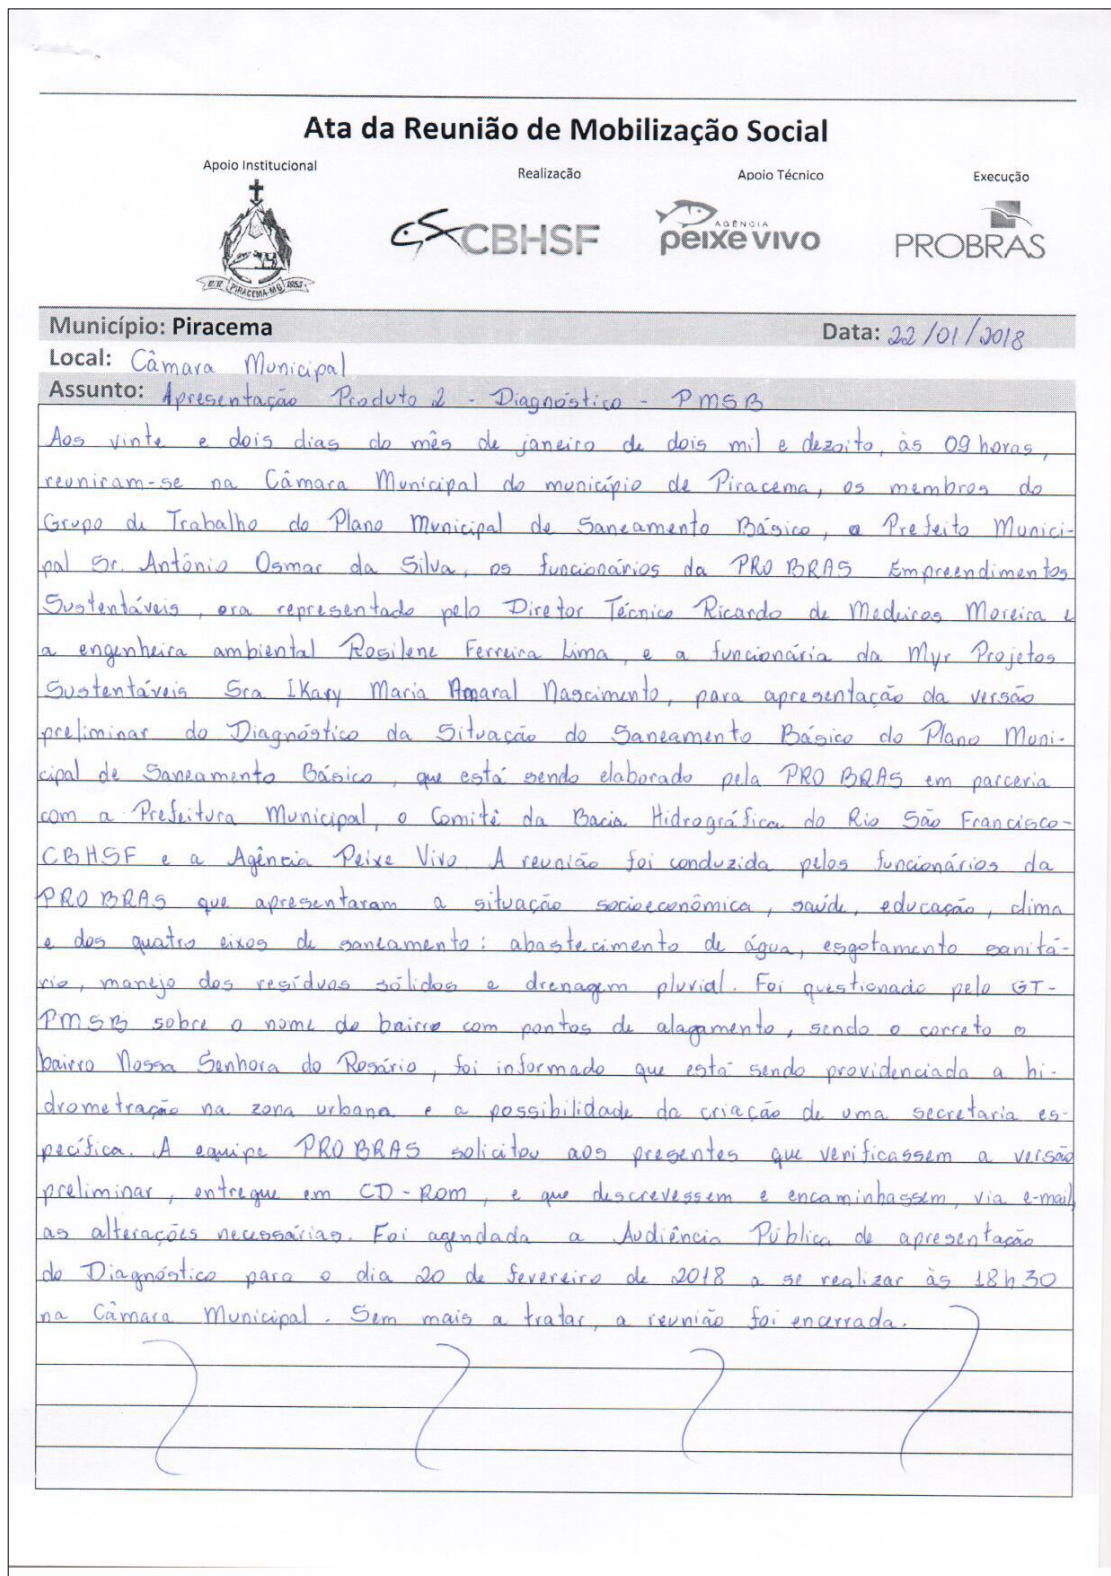 Ata da Reunião de Mobilização Social
Apoio Institucional
Realização
Apoio Técnico
Execução
PIRACEMA-MG 1953
CBHSF
AGÊNCIA
peixe vivo
PROBRAS
Município: Piracema
Data: 22/01/2018
Local: Câmara Municipal
Assunto: Apresentação Produto 2 - Diagnóstico - PMSB
Aos vinte e dois dias do mês de janeiro de dois mil e dezoito, às 09 horas,
reuniram-se na Câmara Municipal do município de Piracema, os membros do
Grupo de Trabalho do Plano Municipal de Saneamento Básico, o Prefeito Munici-
pal Sr. Antônio Osmar da Silva, os funcionários da PROBRAS Empreendimentos
Sustentáveis, ora representado pelo Diretor Técnico Ricardo de Medeiros Moreira e
a engenheira ambiental Rosilene Ferreira Lima, e a funcionária da Myr Projetos
Sustentáveis Sra Ikary Maria Amaral Nascimento, para apresentação da versão
preliminar do Diagnóstico da Situação do Saneamento Básico do Plano Muni-
cipal de Saneamento Básico, que está sendo elaborado pela PROBRAS em parceria
com a Prefeitura Municipal, o Comitê da Bacia Hidrográfica do Rio São Francisco-
CBHSF e a Agência Peixe Vivo. A reunião foi conduzida pelos funcionários da
PROBRAS que apresentaram a situação socioeconômica, saúde, educação, clima
e dos quatro eixos de saneamento: abastecimento de água, esgotamento sanitá-
rio, manejo dos resíduos sólidos e drenagem pluvial. Foi questionado pelo GT-
PMSB sobre o nome do bairro com pontos de alagamento, sendo o correto o
bairro Nossa Senhora do Rosário, foi informado que está sendo providenciada a hi-
drometração na zona urbana e a possibilidade da criação de uma secretaria es-
pecífica. A equipe PROBRAS solicitou aos presentes que verificassem a versão
preliminar, entregue em CD-ROM, e que descrevessem e encaminhassem, via e-mail,
as alterações necessárias. Foi agendada a Audiência Pública de apresentação
do Diagnóstico para o dia 20 de fevereiro de 2018 a se realizar às 18h30
na Câmara Municipal. Sem mais a tratar, a reunião foi encerrada.